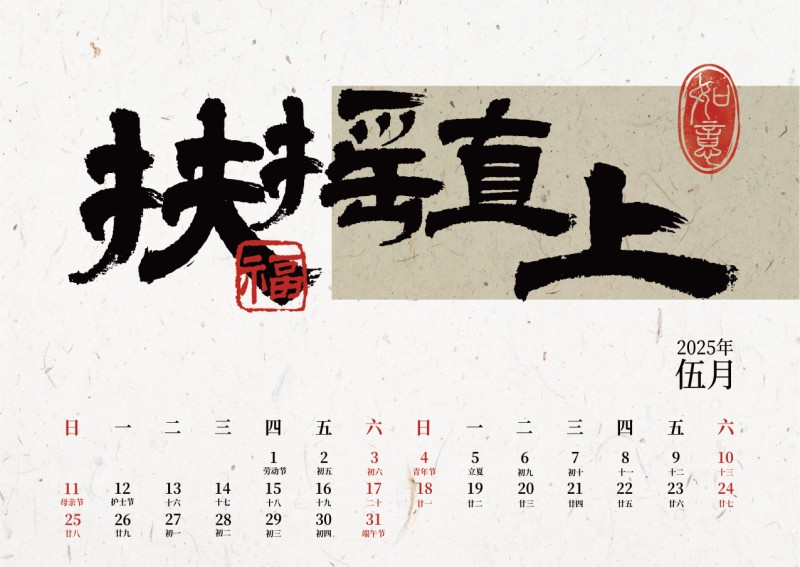 扶摇直上
如意
福
2025年
伍月
日 一 二 三 四 五 六 日 一 二 三 四 五 六
1 2 3 4 5 6 7 8 9 10
劳动节 初五 初六 青年节 立夏 初九 初十 十一 十二 十三
11 12 13 14 15 16 17 18 19 20 21 22 23 24
母亲节 护士节 十六 十七 十八 十九 二十 廿一 廿二 廿三 廿四 廿五 廿六 廿七
25 26 27 28 29 30 31
廿八 廿九 初一 初二 初三 初四 端午节